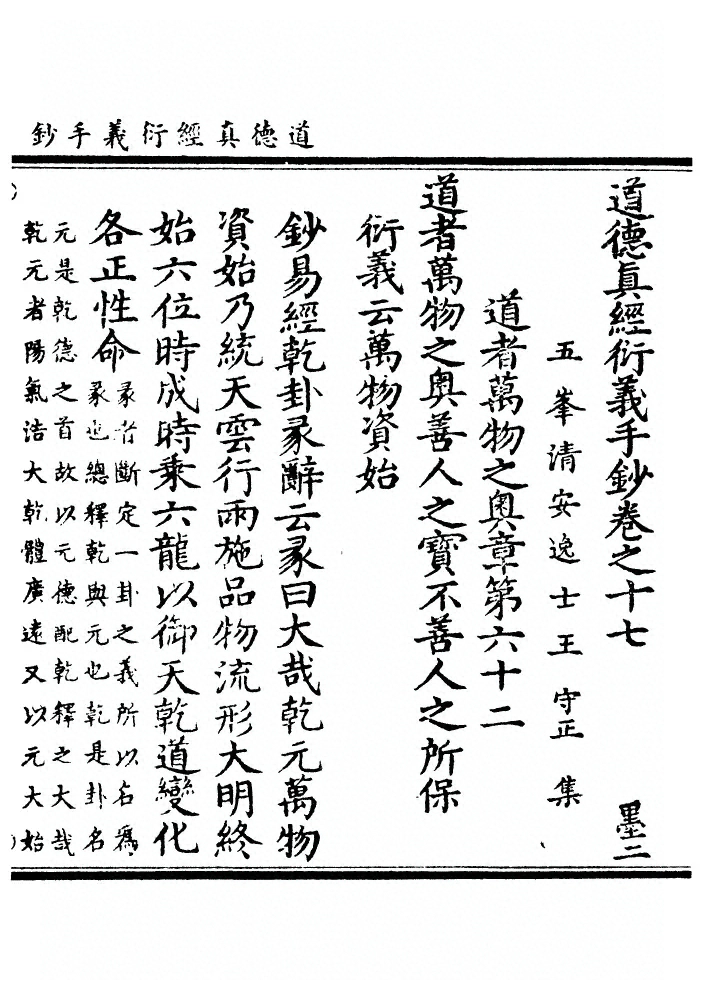 道德真經衍義手鈔
道德眞經衍義手鈔卷之十七 墨二
五峯清安逸士王守正集
道者萬物之奧章第六十二
道者萬物之奧善人之寶不善人之所保
衍義云萬物資始
鈔易經乾卦彖辭云彖曰大哉乾元萬物
資始乃統天雲行雨施品物流形大明終
始六位時成時乘六龍以御天乾道變化
各正性命
彖者斷定一卦之義所以名爲
彖也總釋乾與元也乾是卦名
元是乾德之首故以元德配乾釋之大哉
乾元者陽氣浩大乾體廣遠又以元大始